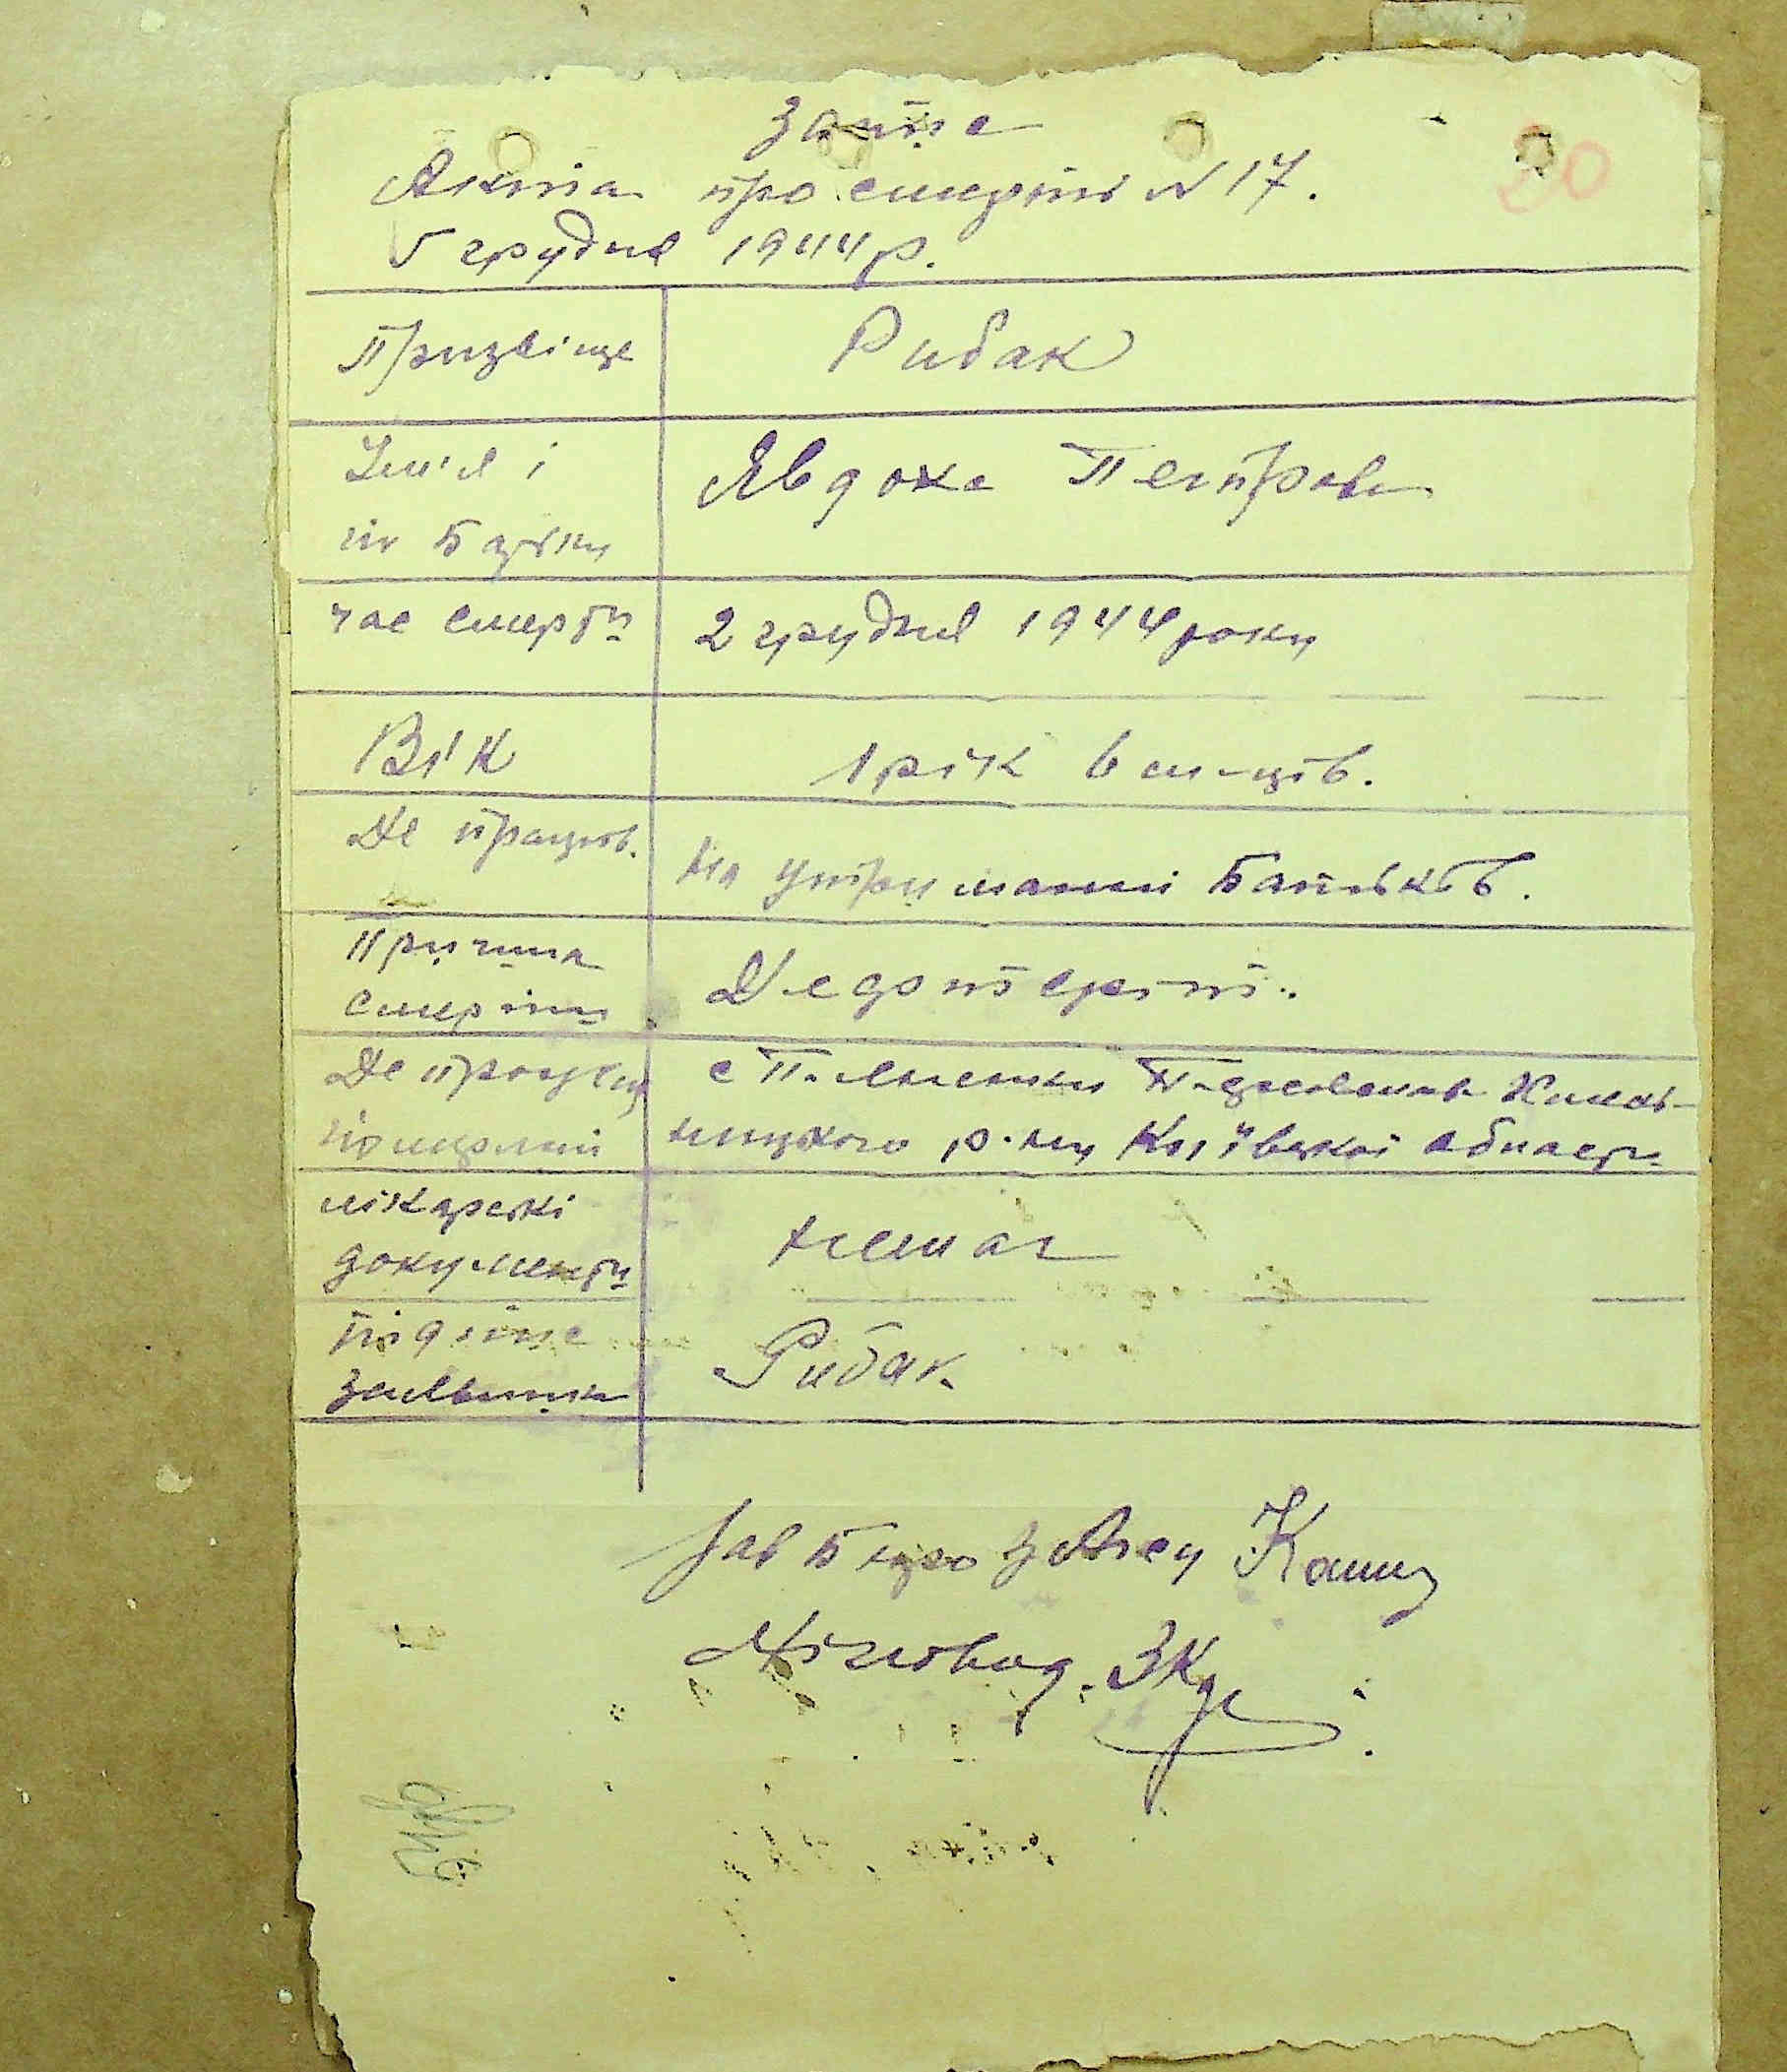 Запис
Акта про смерть N 17.
5 грудня 1944 р.
20
Призвіще
Рибак
Ім'я і
по Батьки
Явдоха Петровн
час смерти
2 грудня 1944 року
Вік
1 рік 6 м-ців.
Де працюв.
На утриманні Батьків.
Причина
смерти
Де прожив
померлий
с П. Хмельницького р-ну Київської области
лікарські
документи
немає
підпис
заявника
Рибак
Зав Бюро ЗАгсу
Діловод.